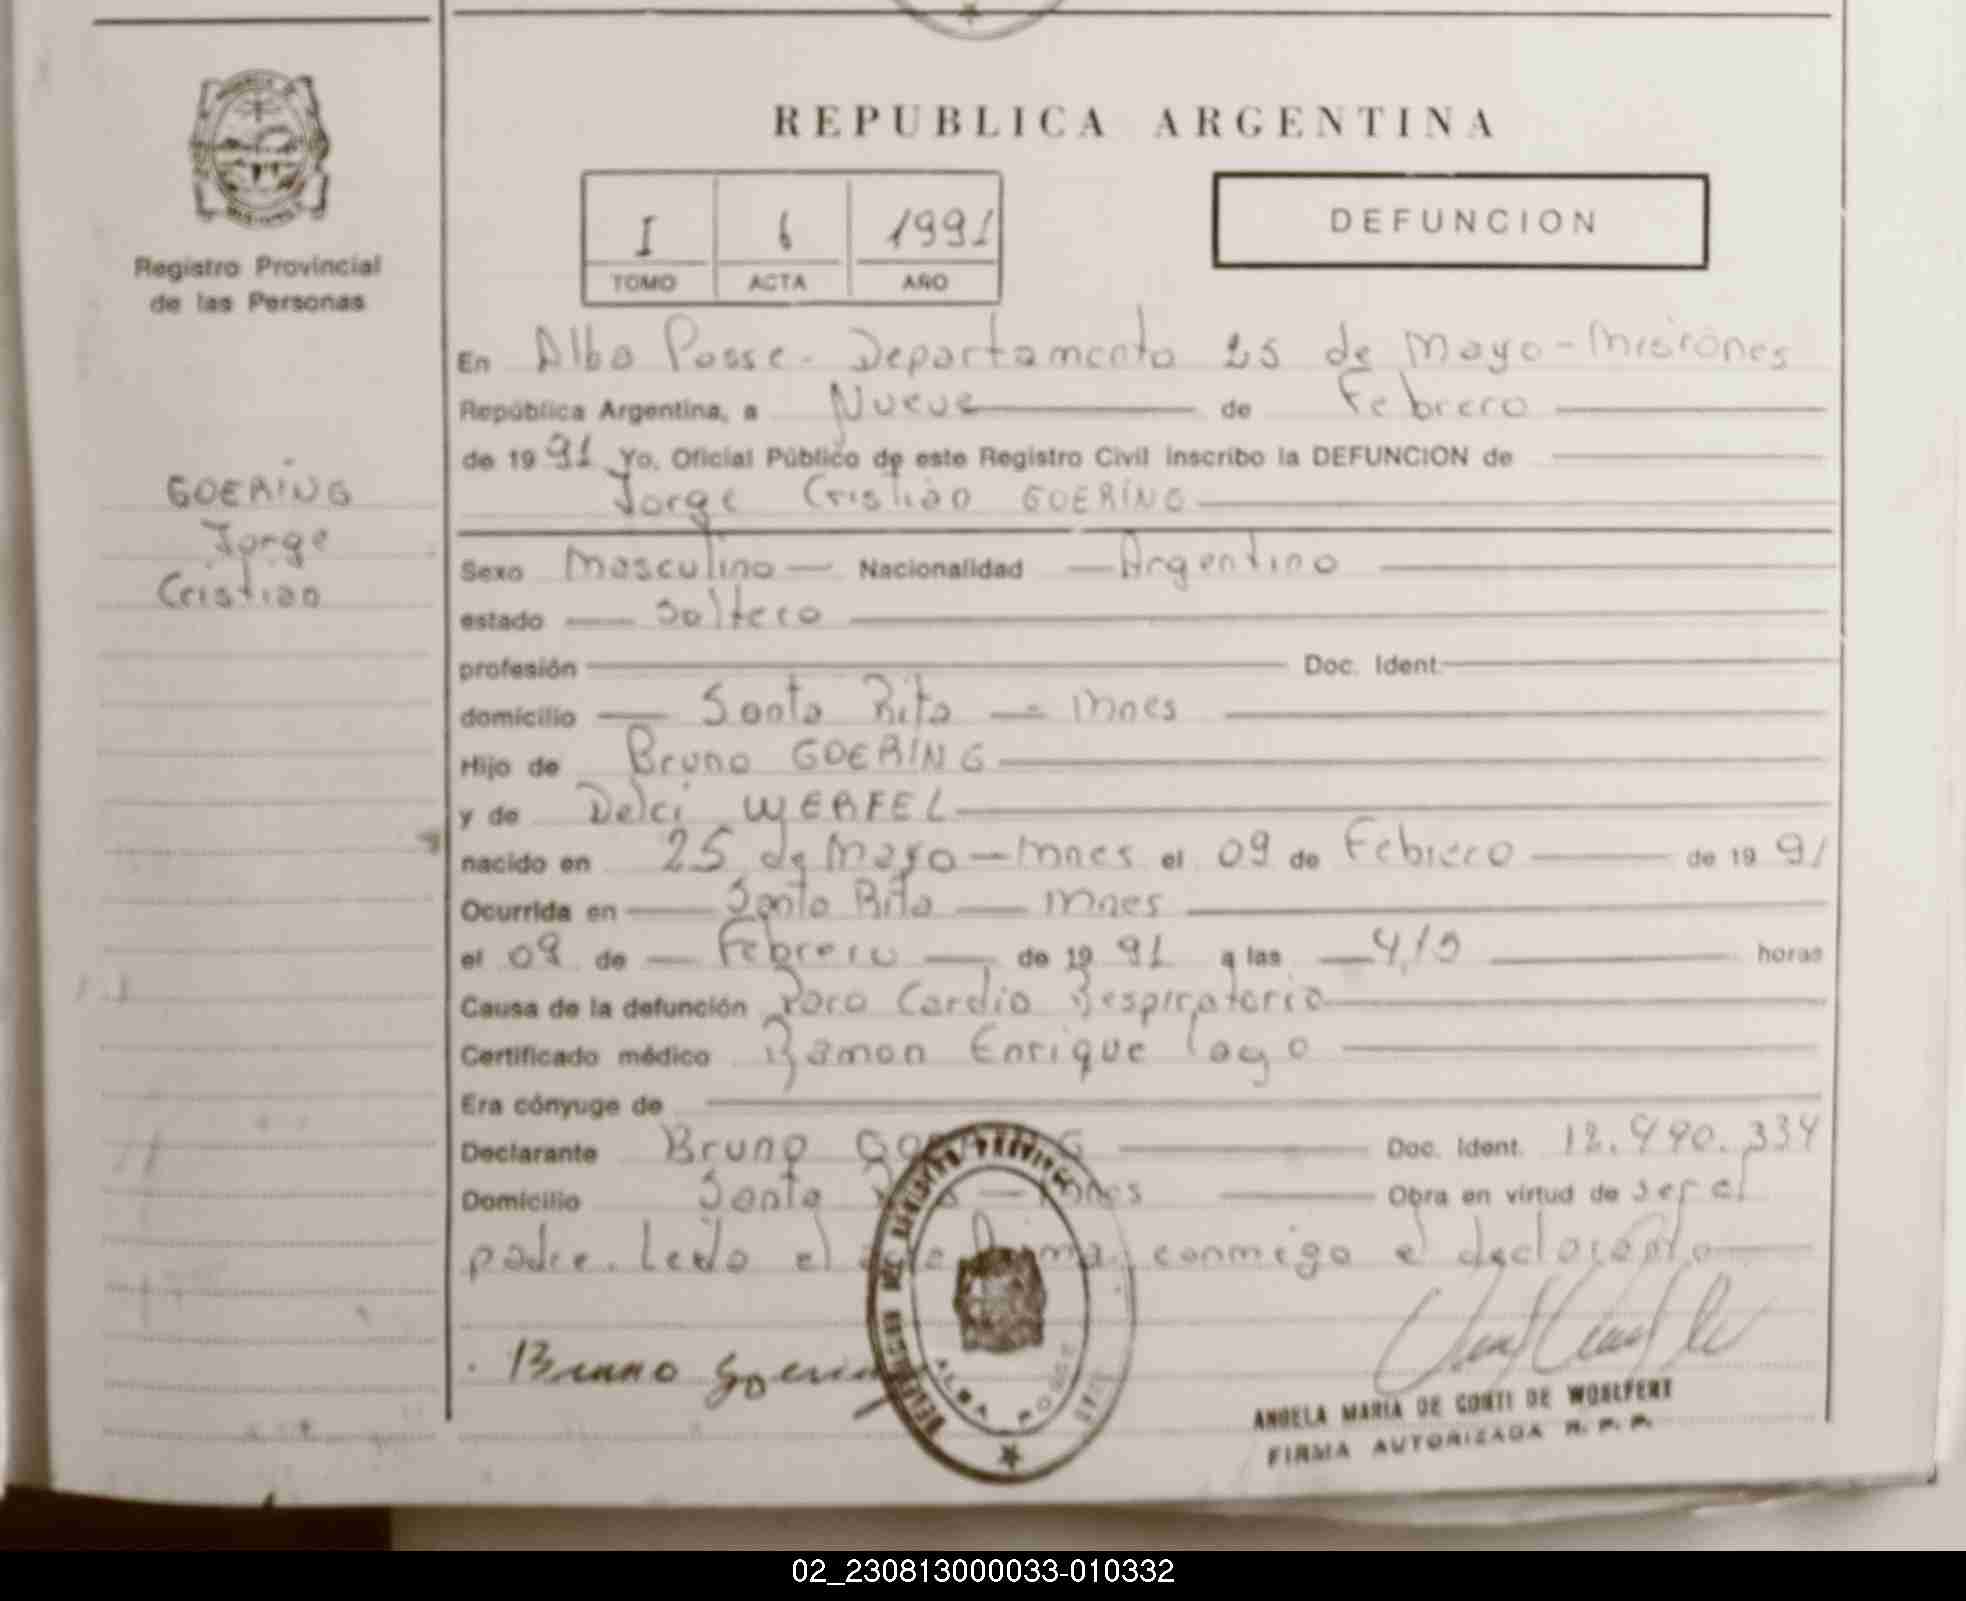 REPUBLICA ARGENTINA
Registro Provincial
de las Personas
I 6 1991
TOMO ACTA AÑO
DEFUNCION
GOERING
Jorge
Cristian
En Alba Posse - Departamento 25 de Mayo - Misiones
República Argentina, a Nueve de Febrero
de 19 91 Yo, Oficial Público de este Registro Civil inscribo la DEFUNCION de
Jorge Cristian GOERING
Sexo Masculino Nacionalidad Argentino
estado Soltero
profesión Doc. Ident.
domicilio Santa Rita - Mnes
Hijo de Bruno GOERING
y de Delci WERFEL
nacido en 25 de Mayo - Mnes el 09 de Febrero de 19 91
Ocurrida en Santa Rita Mnes
el 09 de Febrero de 19 91 a las horas
Causa de la defunción Paro Cardio Respiratorio
Certificado médico Ramon Enrique
Era cónyuge de
Declarante Bruno Doc. Ident. 12.990.334
Domicilio Santa Mnes Obra en virtud de ser el
padre. Leido el conmigo el declarante
Bruno Goering
ALBA POSSE
ANGELA MARIA DE CONTI DE WOHLFERT
FIRMA AUTORIZADA R. P. P.
02_230813000033-010332